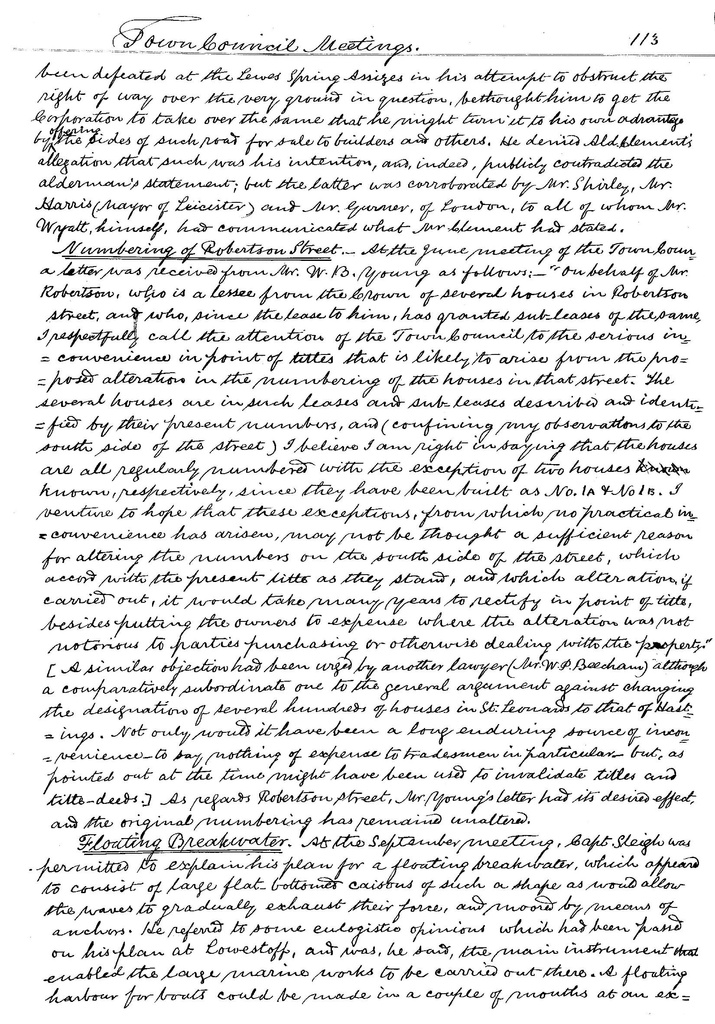 Town Council Meetings. 113
been defeated at the Lewes Spring Assizes in his attempt to obstruct the
right of way over the very ground in question, bethought him to get the
Corporation to take over the same that he might turn it to his own advantage
by offering the sides of such road for sale to builders and others. He denied Ald. Clement's
allegation that such was his intention, and, indeed, publicly contradicted the
alderman's statement; but the latter was corroborated by Mr. Shirley, Mr.
Harris (Mayor of Leicister) and Mr. Gurner, of London, to all of whom Mr.
Wyatt, himself, had communicated what Mr Clement had stated.
Numbering of Robertson Street.— At the June meeting of the Town Coun
a letter was received from Mr. W. B. Young as follows:— "On behalf of Mr.
Robertson, who is a lessee from the Crown of several houses in Robertson
street, and who, since the lease to him, has granted sub-leases of the same,
I respectfully call the attention of the Town Council to the serious in=
=convenience in point of titles that is likely to arise from the pro=
=posed alteration in the numbering of the houses in that street. The
several houses are in such leases and sub-leases described and identi=
=fied by their present numbers, and (confining my observations to the
south side of the street) I believe I am right in saying that the houses
are all regularly numbered with the exception of two houses
known, respectively, since they have been built as No. 1A & No 1B. I
venture to hope that these exceptions, from which no practical in=
=convenience has arisen, may not be thought a sufficient reason
for altering the numbers on the south side of the street, which
accord with the present title as they stand, and which alteration, if
carried out, it would take many years to rectify in point of title,
besides putting the owners to expense where the alteration was not
notorious to parties purchasing or otherwise dealing with the property."
[A similar objection had been urged by another lawyer (Mr. W. P. Beecham) although
a comparatively subordinate one to the general argument against changing
the designation of several hundreds of houses in St. Leonards to that of Hast=
=ings. Not only would it have been a long enduring source of incon=
=venience—to say nothing of expense to tradesmen in particular—but, as
pointed out at the time might have been used to invalidate titles and
title-deeds.] As regards Robertson street, Mr. Young's letter had its desired effect,
and the original numbering has remained unaltered.
Floating Breakwater. At the September meeting, Capt. Sleigh was
permitted to explain his plan for a floating breakwater, which appeared
to consist of large flat-bottomed caisons of such a shape as would allow
the waves to gradually exhaust their force, and moored by means of
anchors. He referred to some eulogistic opinions which had been passed
on his plan at Lowestoff, and was, he said, the main instrument that
enabled the large marine works to be carried out there. A floating
harbour for boats could be made in a couple of months at an ex=